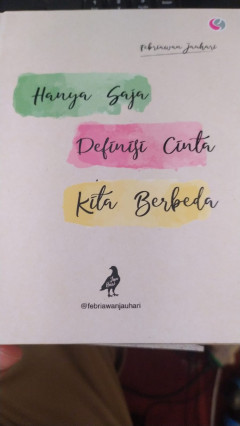 Febriawan Jauhari
Hanya Saja
Definisi Cinta
Kita Berbeda
@febriawanjauhari